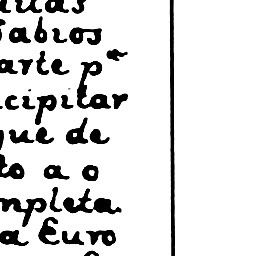 uitas
Sabios
arte pᵃ
cipitar
que de
to a o
mpleta.
a Euro